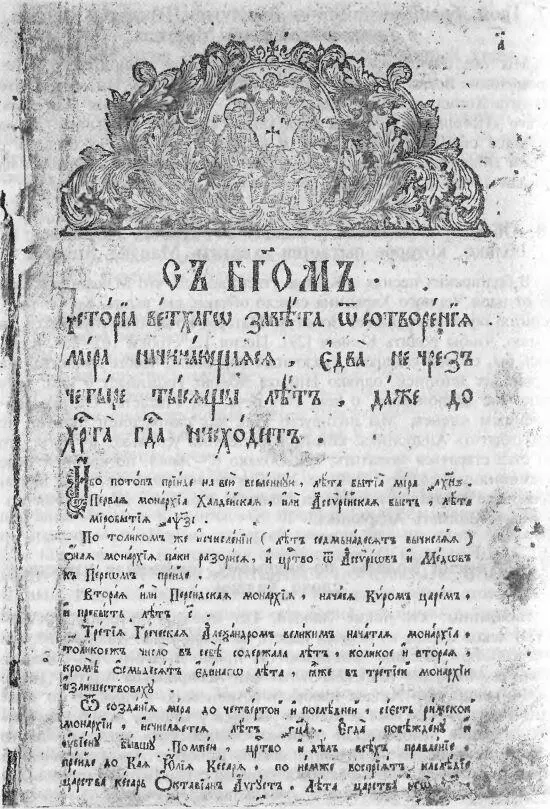 а҃
СЪ БГ҃ОМЪ.
Исторїа ветхагѡ завѣта ѿ сотворенїя
мїра начинающаяся, едва не чрезъ
четыре тысящы лѣтъ, даже до
хрⷭ҇та гдⷭ҇а нисходитъ.
Ибо потопъ прїиде на всю вселенную, лѣта бытїа мїра ҂ахн҃ѕ.
Первая монархїа Халдейская, или Ассѵрїйская бысть, лѣта
миробытїя
По толикомъ же исчисленїи ( лѣтъ седмьнадесятъ вычисляя )
ѡная монархїа паки разорися, и црⷭ҇тво ѿ Ассѵрїѡвъ и Медѡвъ
къ Персѡмъ прїиде.
Вторая или Персидская монархїя, начася Куромъ царемъ,
и пребысть лѣтъ с҃.
Третїя Греческая Алеѯандромъ великимъ начатая монархїа,
толикоежъ число въ себѣ содержала лѣтъ, коликое и вторая,
кромѣ ѻсмьдесятъ единагѡ лѣта, ꙗже въ третїей монархїи
излишествоваху
Ѿ созданїя мїра до четвертой и послѣдней, сїесть римской
монархїи, исчисляется лѣтъ ҂гц҃а. Егда побѣждену и
ꙋбїену бывшу Помпею, црⷭ҇тво и дѣлъ всѣхъ правленїе,
прїиде до Каꙗ Юлїа Кесарꙗ, по немже воспрїятъ наслѣдїе
царства кесарь Октавїанъ Аѵгустъ. Лѣта царства